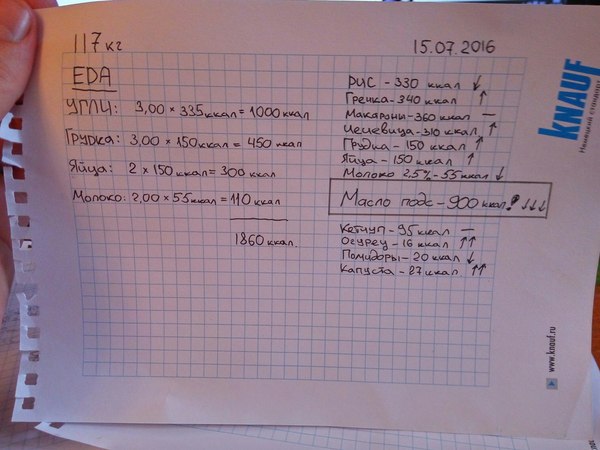 117 кг
15.07.2016
ЕДА
УГЛИ: 3,00 × 335 ккал = 1000 ккал
Грудка: 3,00 × 150 ккал = 450 ккал
Яйца: 2 × 150 ккал = 300 ккал
Молоко: 2,00 × 55 ккал = 110 ккал
1860 ккал.
РИС - 330 ккал ↓
Гречка - 340 ккал ↑
Макароны - 360 ккал —
Чечевица - 310 ккал ↑
Грудка - 150 ккал ↑
Яйца - 150 ккал ↑
Молоко 2,5% - 55 ккал ↓
Масло подс - 900 ккал! ↓↓↓
Кетчуп - 95 ккал —
Огурец - 16 ккал ↑↑
Помидоры - 20 ккал ↓
Капуста - 27 ккал ↑↑
KNAUF
Немецкий стандарт
www.knauf.ru